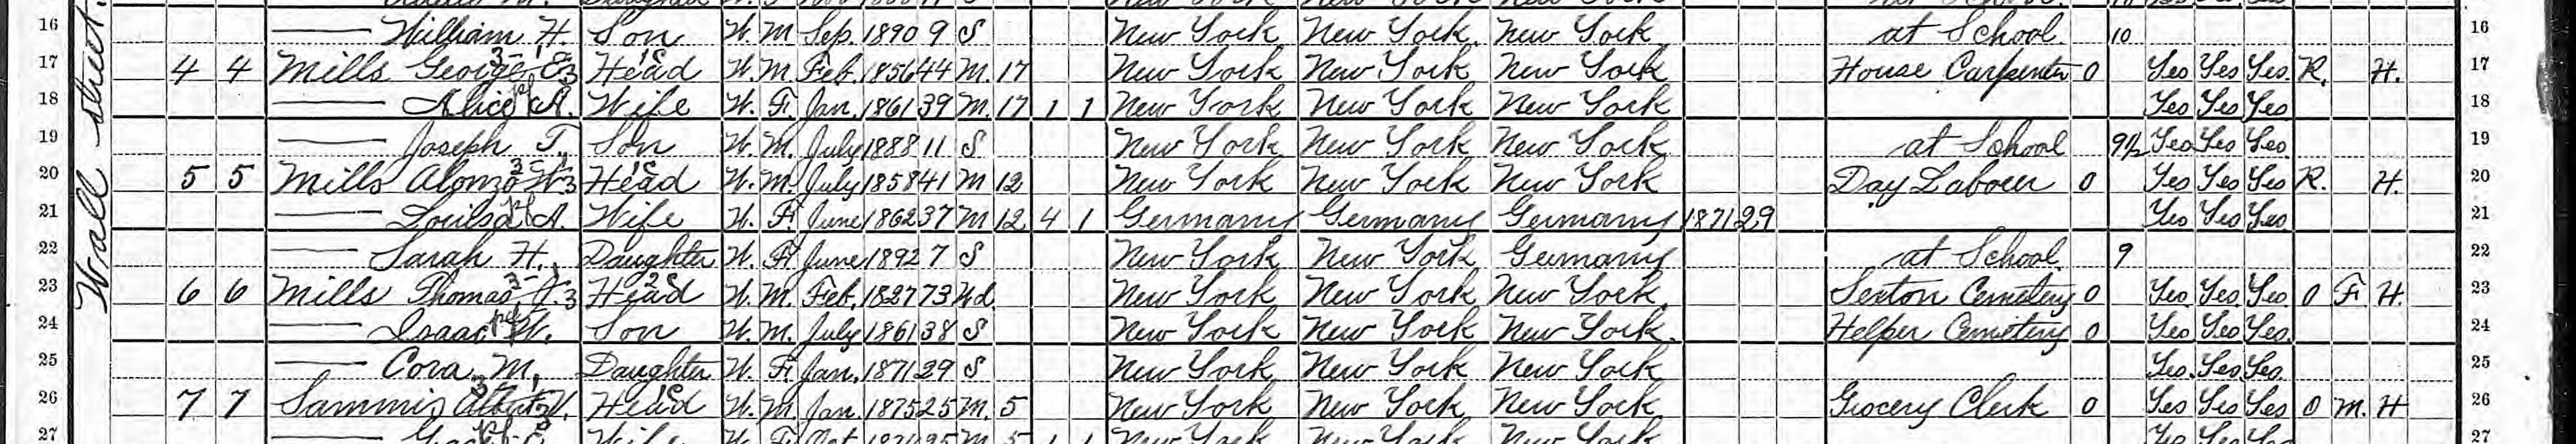 Wall street.
16 —— William H. Son W. M Sep. 1890 9 S New York New York New York at School 10 16
17 4 4 Mills George E. Head W. M. Feb. 1856 44 M. 17 New York New York New York House Carpenter 0 Yes Yes Yes R. H. 17
18 —— Alice A. Wife W. F. Jan. 1861 39 M. 17 1 1 New York New York New York Yes Yes Yes 18
19 —— Joseph T. Son W. M. July 1888 11 S New York New York New York at School 9½ Yes Yes Yes 19
20 5 5 Mills Alonzo W. Head W. M. July 1858 41 M 12 New York New York New York Day Laborer 0 Yes Yes Yes R. H. 20
21 —— Louisa A. Wife W. F. June 1862 37 M 12 4 1 Germany Germany Germany 1871 29 Yes Yes Yes 21
22 —— Sarah H. Daughter W. F. June 1892 7 S New York New York Germany at School 9 22
23 6 6 Mills Thomas J. Head W. M. Feb. 1827 73 Wd. New York New York New York Sexton Cemetery 0 Yes Yes Yes O F H. 23
24 —— Isaac W. Son W. M. July 1861 38 S New York New York New York Helper Cemetery 0 Yes Yes Yes 24
25 —— Cora M. Daughter W. F. Jan. 1871 29 S New York New York New York Yes Yes Yes 25
26 7 7 Sammis Head W. M. Jan. 1875 25 M. 5 New York New York New York Grocery Clerk 0 Yes Yes Yes O M. H 26
27 Wife W. F. Oct. M 5 1 1 New York New York New York Yes Yes Yes 27